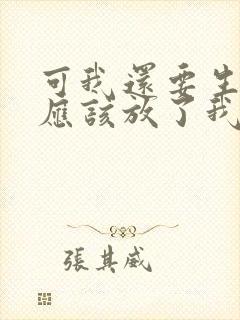 可我還要生
應該放了我
張其威